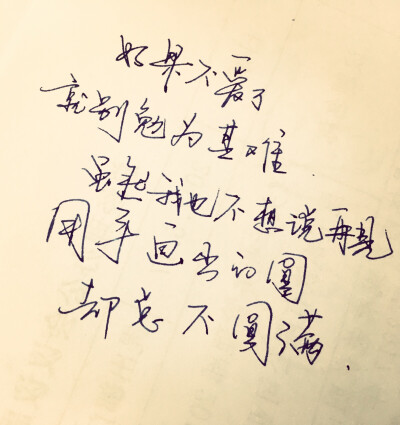 如果不爱了
就别勉为其难.
虽然我也不想说再见
用手画出的圆
却总不圆满.